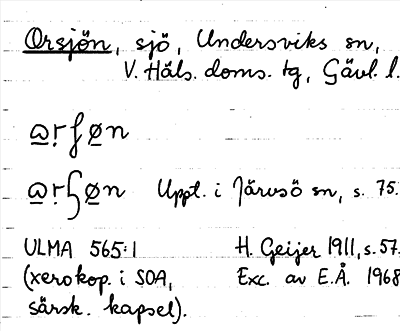 Orsjön, sjö, Undersviks sn,
V. Häls. doms. tg, Gävl. l.
ω̱rʃø̱n
ω̱rɧø̱n Uppt. i Järvsö sn, s. 75.
ULMA 565:1 H. Geijer 1911, s. 57.
(xerokop. i SOA, Exc. av E.Å. 1968
särsk. kapsel).